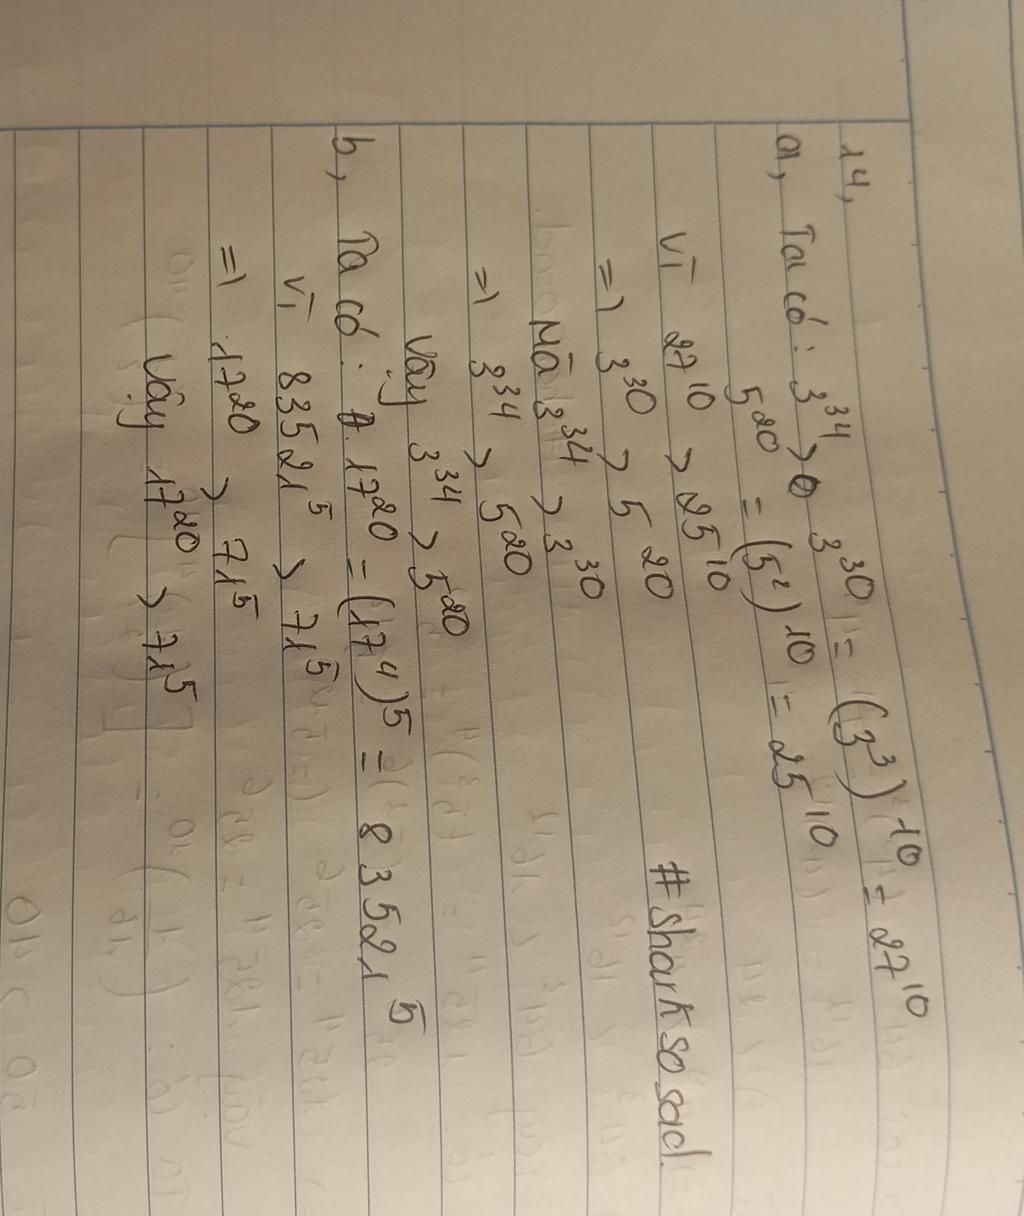 14,
a, Ta có: 3³⁴ > 3³⁰ = (3³)¹⁰ = 27¹⁰
5²⁰ = (5²)¹⁰ = 25¹⁰
Vì 27¹⁰ > 25¹⁰
=> 3³⁰ > 5²⁰
Mà 3³⁴ > 3³⁰
=> 3³⁴ > 5²⁰
Vậy 3³⁴ > 5²⁰
#sharksosad.
b, Ta có: 17²⁰ = (17⁴)⁵ = 83521⁵
Vì 83521⁵ > 71⁵
=> 17²⁰ > 71⁵
Vậy 17²⁰ > 71⁵